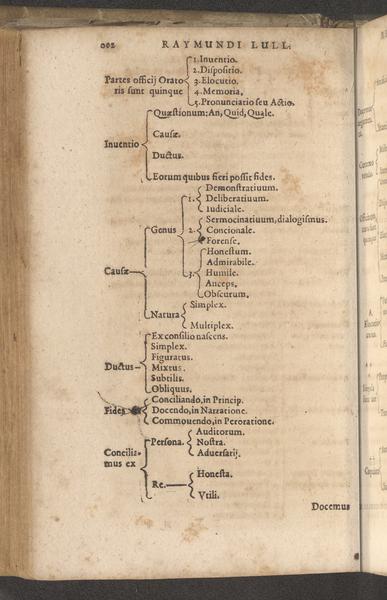 202 RAYMUNDI LULL.
1. Inuentio.
2. Dispositio.
Partes officij Orato
ris sunt quinque
3. Elocutio.
4. Memoria,
5. Pronunciatio seu Actio.
Quæstionum: An, Quid, Quale.
Causæ.
Inuentio
Ductus.
Eorum quibus fieri possit fides.
Demonstratiuum.
1. Deliberatiuum.
Iudiciale.
Sermocinatiuum, dialogismus.
Genus 2. Concionale.
Forense.
Honestum.
Admirabile.
Causæ 3. Humile.
Anceps.
Obscurum.
Simplex.
Natura
Multiplex.
Ex consilio nascens.
Simplex.
Figuratus.
Ductus Mixtus.
Subtilis.
Obliquus.
Conciliando, in Princip.
Fides Docendo, in Narratione.
Commouendo, in Peroratione.
Auditorum.
Persona. Nostra.
Concilia-
mus ex
Aduersarij.
Honesta.
Re.
Vtili.
Docemus